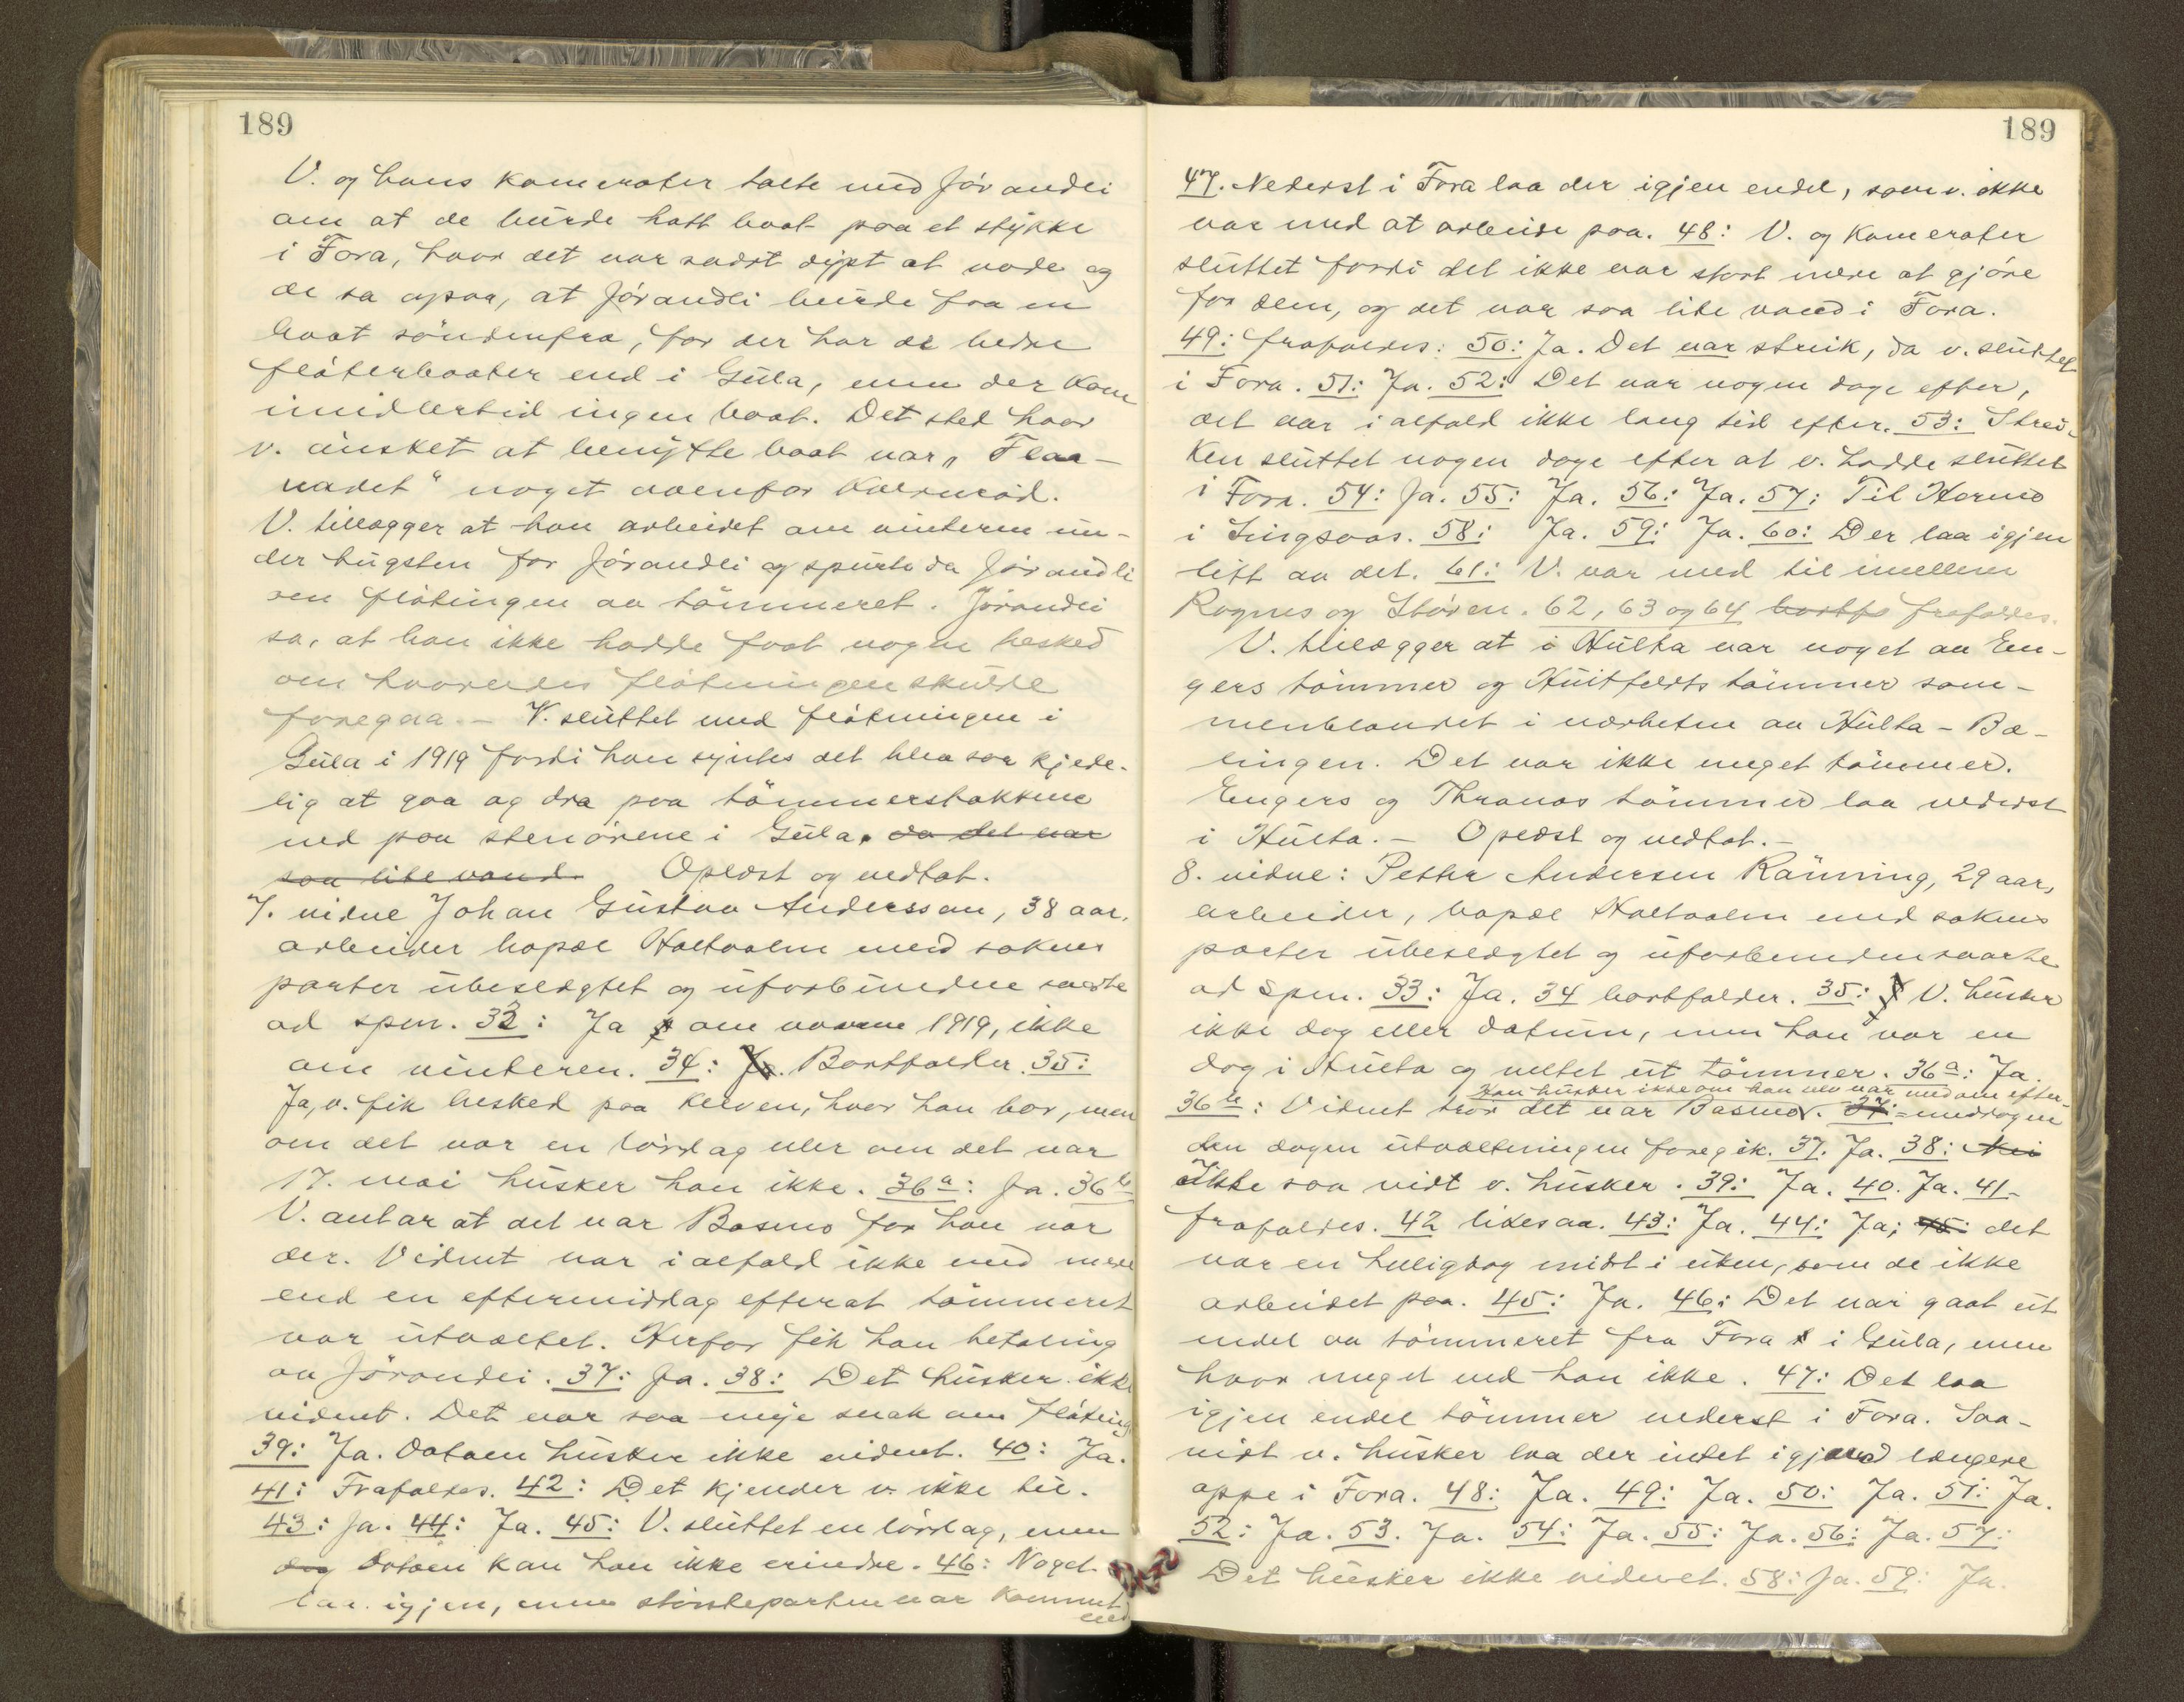 189
V. og hans kamerater talte med Jörandli
om at de burde hatt baat paa et stykke
i Fora, hvor det var svært dypt at vade og
de sa ogsaa, at Jörandli burde faa en
baat söndenfra, for der har de bedre
flöterbaater end i Gula, men der kom
imidlertid ingen baat. Det sted hvor
v. önsket at benytte baat var „Flaa-
vadet" noget ovenfor Kvernröd.
V. tillægger at han arbeidet om vinteren un-
der hugsten for Jörandli og spurte da Jörandli
om flötingen av tömmeret. Jörandli
sa, at han ikke hadde faat nogen besked
om hvorledes flötningen skulde
foregaa. – V. sluttet med flötningen i
Gula i 1919 fordi han syntes det blev saa kjede-
lig at gaa og dra paa tömmerstokkene
ned paa stenörene i Gula. da det var
saa lite vand. Oplæst og vedtat.
7. vidne Johan Gustav Andersson, 38 aar,
arbeider bopæl Haltdalen med sakens
parter ubeslægtet og uforbunden svarte
ad spm. 33: Ja om vaaren 1919, ikke
om vinteren. 34: Ja. Bortfalder. 35:
Ja, v. fik besked paa Kleven, hvor han bor, men
om det var en lördag eller om det var
17. mai husker han ikke. 36a: Ja. 36b
V. antar at det var Basmo for han var
der. Vidnet var ialfald ikke med mere
end en eftermiddag efterat tömmeret
var utvæltet. Herfor fik han betaling
av Jörandli. 37: Ja. 38: Det husker ikke
vidnet. Det var saa mye snak om flöting.
39: Ja. Datoen husker ikke vidnet. 40: Ja.
41: Frafaldes. 42: Det kjender v. ikke til.
43: Ja. 44: Ja. 45: V. sluttet en lördag, men
dag datoen kan han ikke erindre. 46: Noget
laa igjen, men störsteparten var kommet
ned
189
47. Nederst i Fora laa der igjen endel, som v. ikke
var med at arbeide paa. 48: V. og kamerater
sluttet fordi det ikke var stort mere at gjöre
for dem, og det var saa lite vand i Fora.
49: frafaldes: 50: Ja. Det var streik, da v. sluttet
i Fora. 51: Ja. 52: Det var nogen dage efter,
det var ialfald ikke lang tid efter. 53: Strei-
ken sluttet nogen dage efter at v. hadde sluttet
i Fora. 54: Ja. 55: Ja. 56: Ja. 57: Til
i Singsaas. 58: Ja. 59: Ja. 60: Der laa igjen
litt av det. 61: V. var med til imellem
Rognes og Stören. 62, 63 og 64 bortfa frafaldes.
V. tillægger at i Hulta var noget av En-
gers tömmer og Huitfeldts tömmer sam-
menblandet i nærheten av Hulta-Bæ-
lingen. Det var ikke meget tömmer.
Engers og Thranas tömmer laa nederst
i Hulta. – Oplæst og vedtat. –
8. vidne: Petter Andersen Rönning, 29 aar,
arbeider, bopæl Haltdalen med sakens
parter ubeslægtet og uforbunden svarte
ad spm. 33: Ja. 34 bortfalder. 35: J V. husker
ikke dag eller datum, men han var en
dag i Hulta og veltet ut tömmer. 36a: Ja.
Han husker ikke om han selv var med om efter-
36b: Vidnet tror det var Basmo. 37: middagen
den dagen utvæltningen foregik. 37. Ja. 38: Nei
Ikke saa vidt v. husker. 39: Ja. 40. Ja. 41-
frafaldes. 42 likesaa. 43: Ja. 44: Ja; 45: det
var en helligdag midt i uken, som de ikke
arbeidet paa. 45: Ja. 46: Det var gaat ut
endel av tömmeret fra Fora i Gula, men
hvor meget ved han ikke. 47: Det laa
igjen endel tömmer nederst i Fora. Saa-
vidt v. husker laa der intet igjen længere
oppe i Fora. 48: Ja. 49: Ja. 50: Ja. 51: Ja.
52: Ja. 53. Ja. 54: Ja. 55: Ja. 56: Ja. 57:
Det husker ikke vidnet. 58: Ja. 59: Ja.